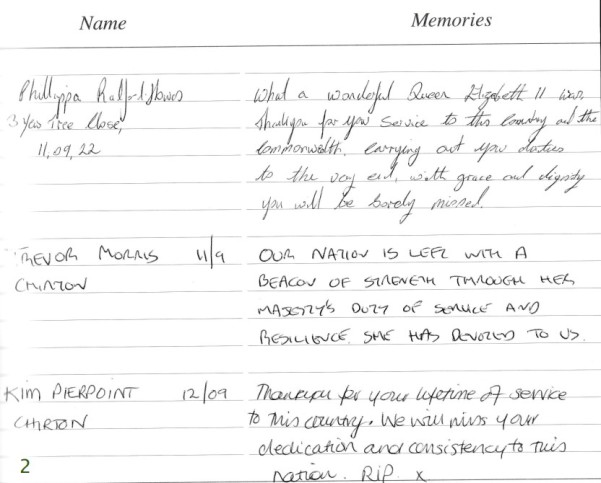 Name Memories
Phillippa Ralf
3 Yew Tree Close,
11,09,22
What a wonderful Queen Elizabeth II was,
Thankyou for your Service to this Country and the
Commonwealth. Carrying out your duties
to the very end, with grace and dignity
you will be sorely missed.
TREVOR MORRIS 11/9
CHIRTON
OUR NATION IS LEFT WITH A
BEACON OF STRENGTH THROUGH HER
MAJESTY'S DUTY OF SERVICE AND
RESILIENCE SHE HAS DEVOTED TO US.
KIM PIERPOINT 12/09
CHIRTON
Thankyou for your lifetime of service
to this country. We will miss your
dedication and consistency to this
nation. RIP. x
2